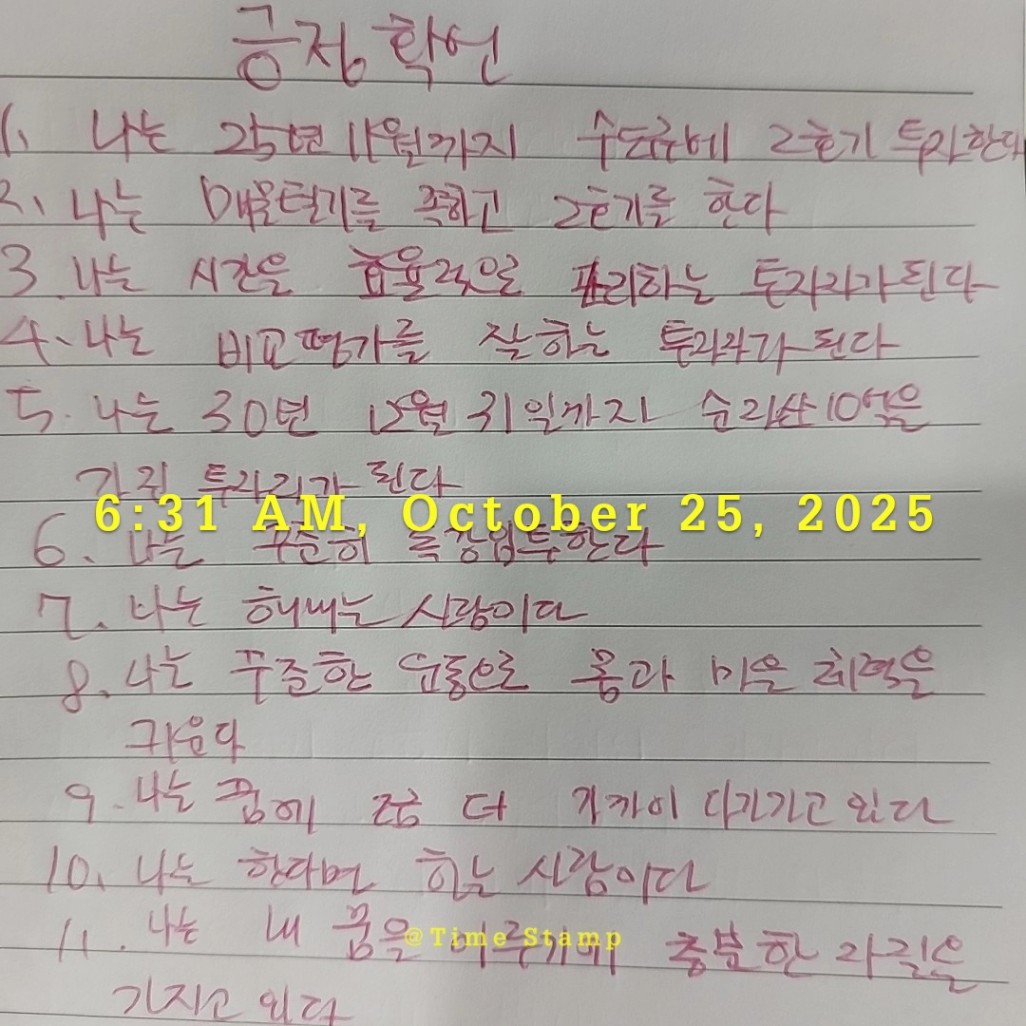 긍정확언
1. 나는 25년 11월까지 수도권에 2호기 투자한다
2. 나는 매물털기를 쪽하고 2호기를 한다
3. 나는 시간을 효율적으로 관리하는 투자자가된다
4. 나는 비교평가를 잘하는 투자자가된다
5. 나는 30년 12월 31일까지 순자산10억을
가진 투자자가 된다
6:31 AM, October 25, 2025
6. 나는 꾸준히 독강임투한다
7. 나는 해내는 사람이다
8. 나는 꾸준한 운동으로 몸과 마음 체력을
키운다
9. 나는 꿈에 좀 더 가까이 다가가고 있다
10. 나는 한다면 하는 사람이다
@Time Stamp
11. 나는 내 꿈을 이루기에 충분한 자질을
가지고 있다